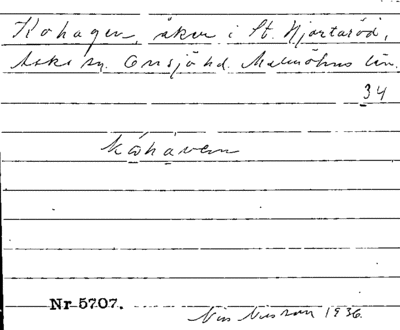 Kohagen, åker i St. Hjortaröd,
Aske sn. Onsjö hd. Malmöhus län.
34
kåhaven
Nr 5707.
Nils Nilsson 1936.